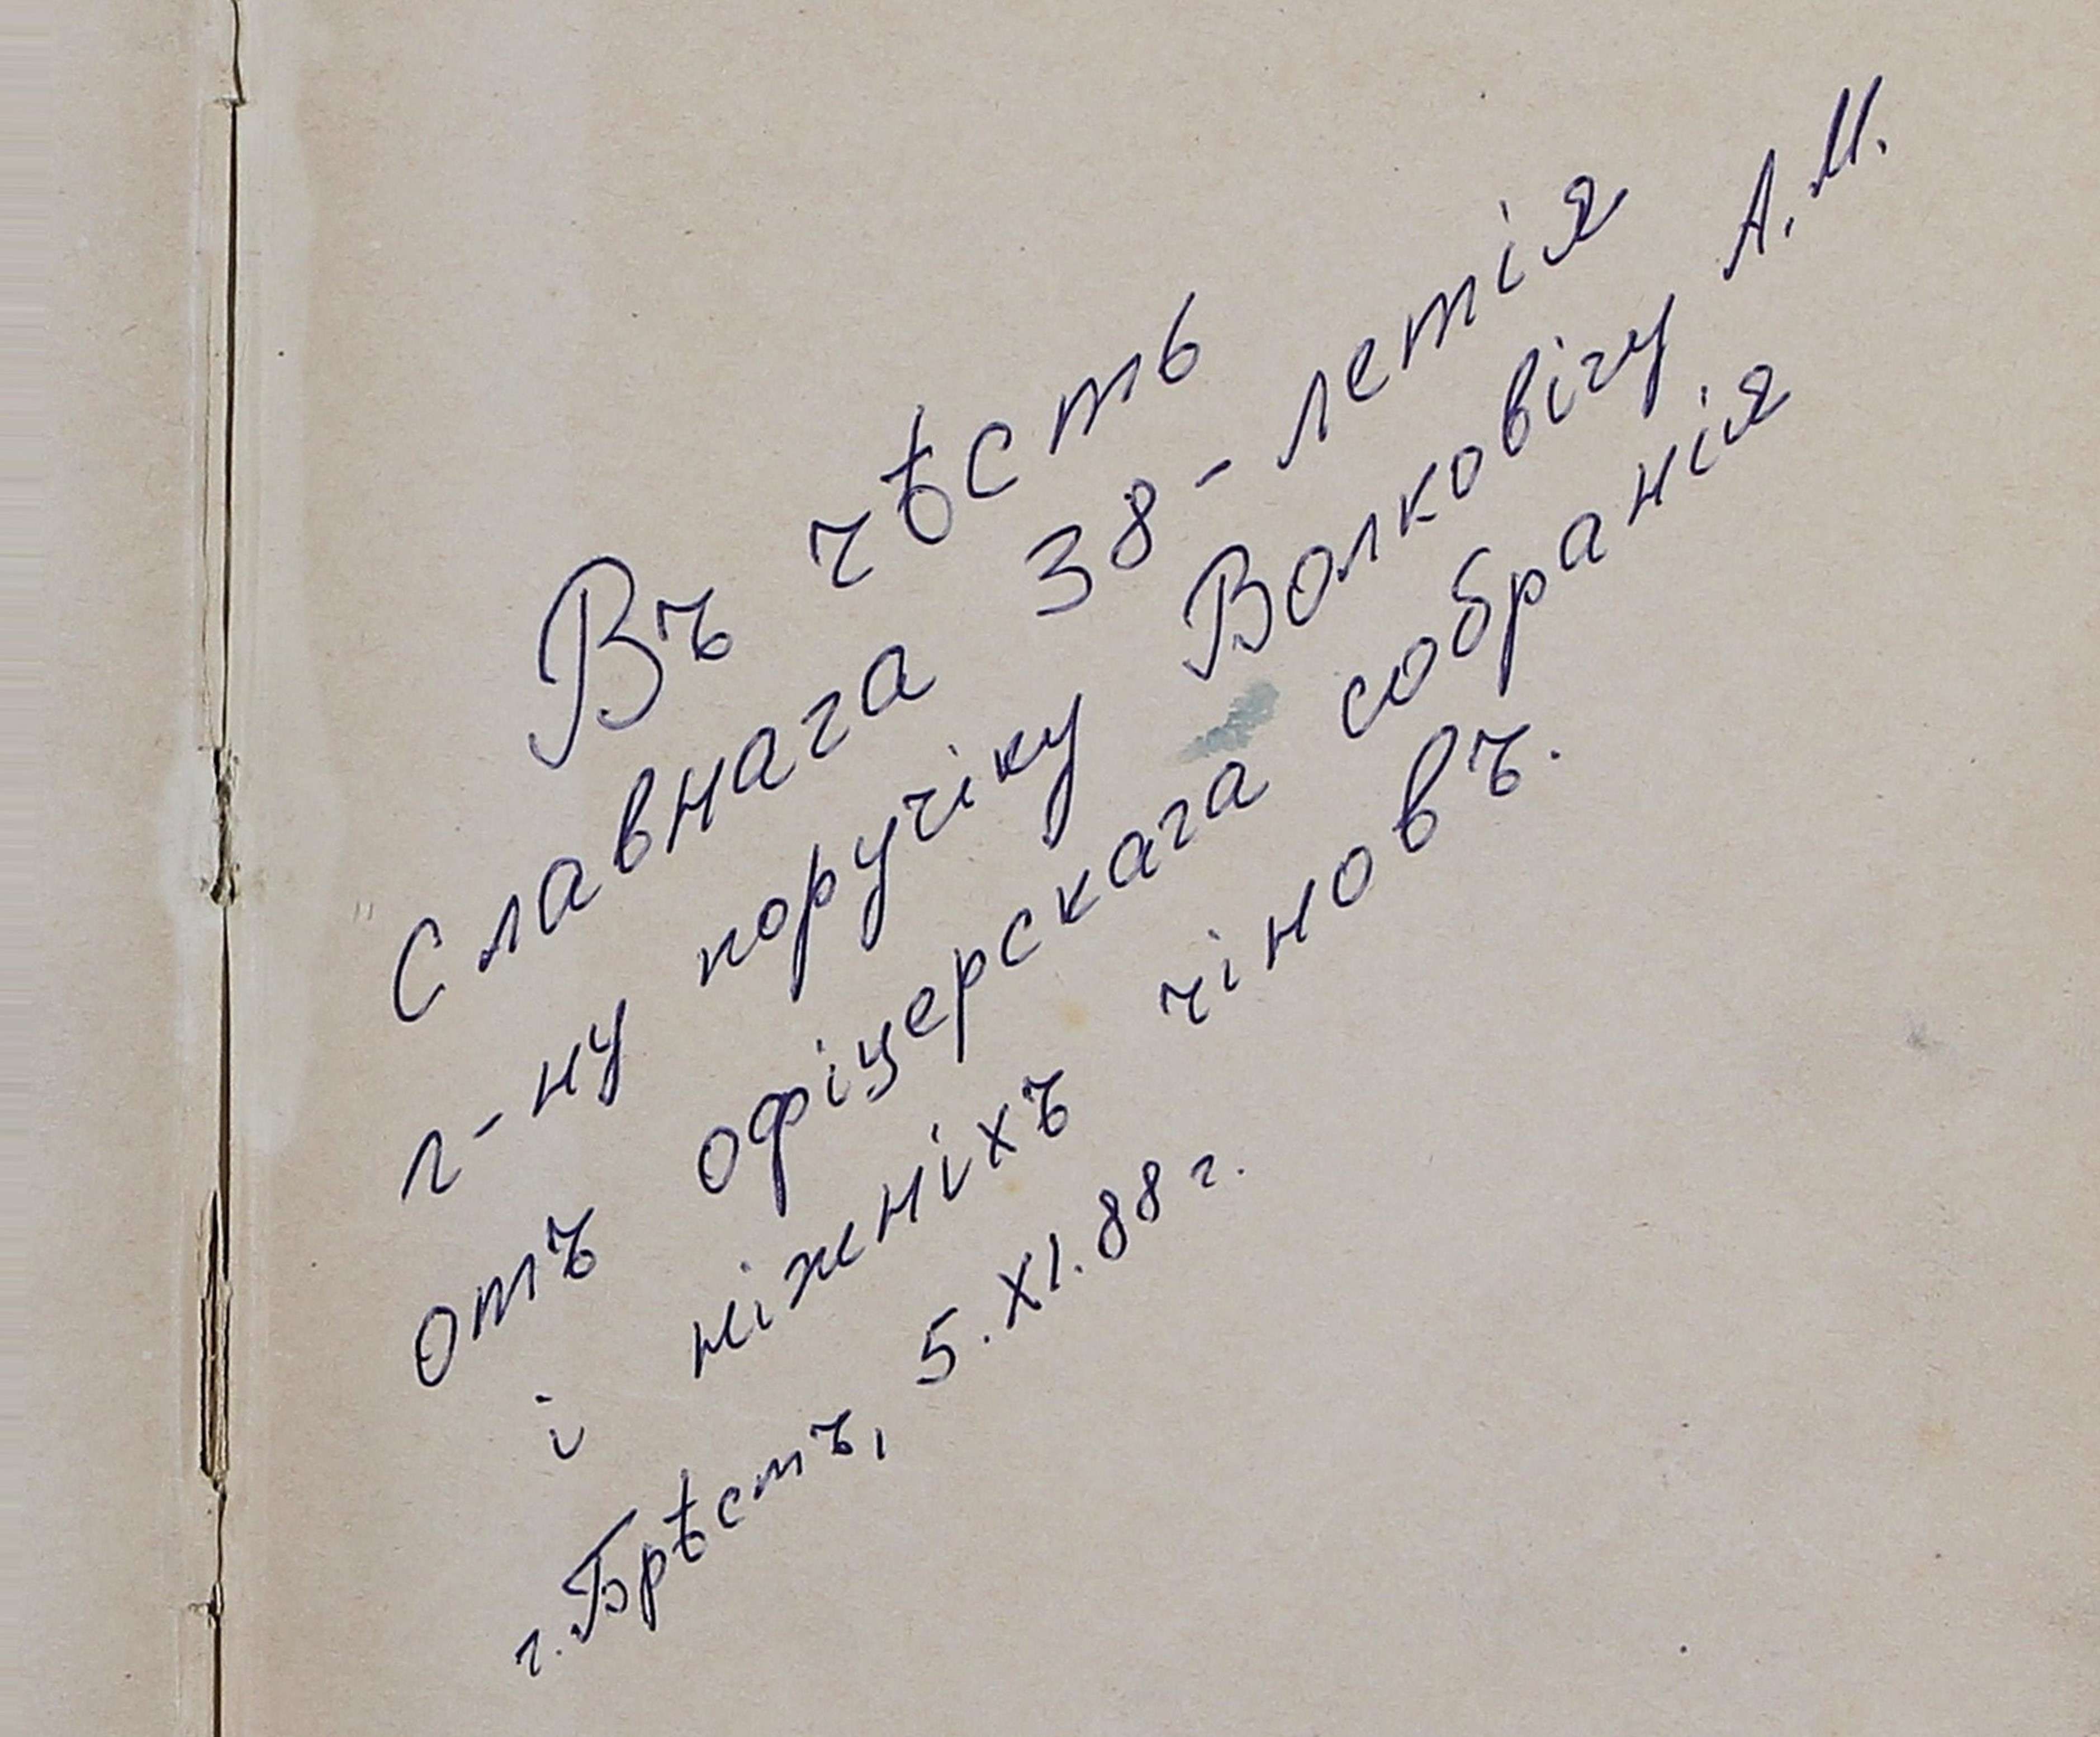 Въ чѣсть
Славнага 38-летія
г-ну поручіку Волковічу А.М.
отъ офіцерскага собранія
і ніжніхъ чіновъ.
г. Брѣстъ, 5.XI.88 г.